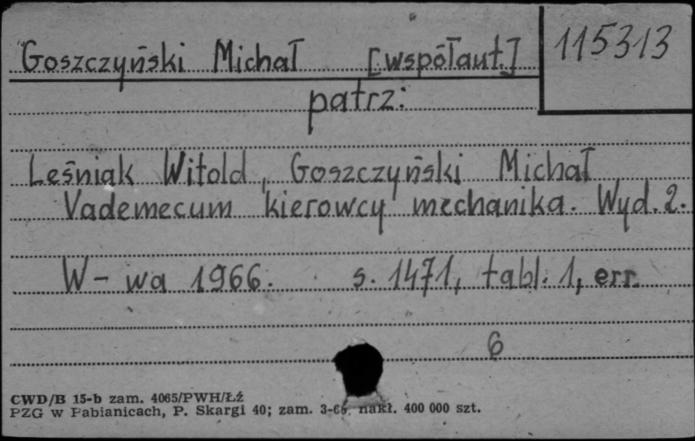 Goszczyński Michał [współaut.]
115313
patrz:
Leśniak Witold, Goszczyński Michał
Vademecum kierowcy mechanika. Wyd. 2.
W-wa 1966. s. 1471, tabl. 1, err.
6
CWD/B 15-b zam. 4065/PWH/Łź
PZG w Pabianicach, P. Skargi 40; zam. 3-66. nakł. 400 000 szt.